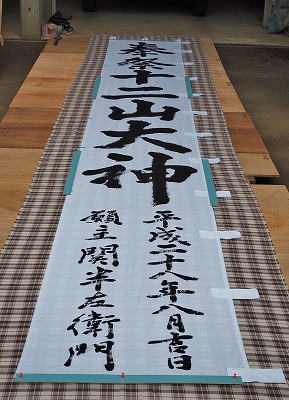 奉祭十二山大神
平成二十八年八月吉日
願主関半左衛門